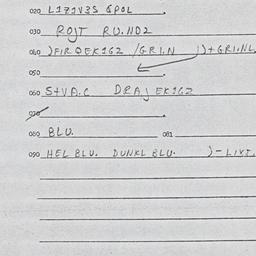 020 L1Z1V3S GPOL
030 ROJT RU.ND2
040 )FIR OEK1GZ /GRI.N 1)+GRI.NL
050
060 S+VA.C DRAJEK1GZ
070
080 BLU. 081
090 HEL BLU. DUNKL BLU. )-LIXT.